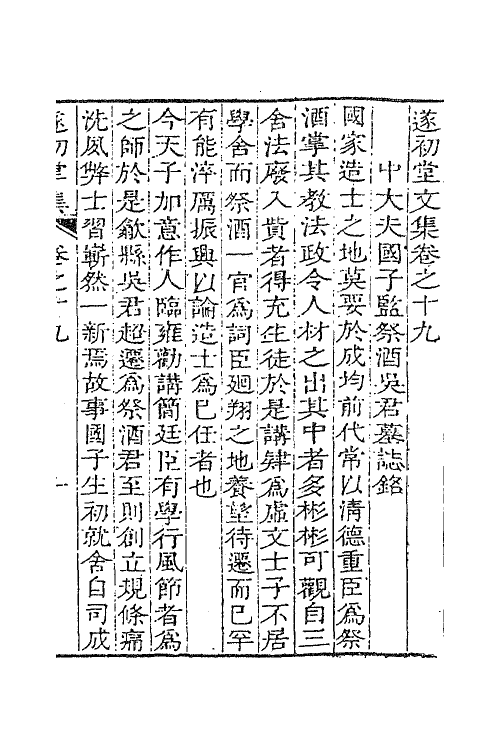 遂初堂文集卷之十九
中大夫國子監祭酒吳君墓誌銘
國家造士之地莫要於成均前代常以清德重臣為祭
酒掌其教法政令人材之出其中者多彬彬可觀自三
舍法廢入貲者得充生徒於是講肄為虛文士子不居
學舍而祭酒一官為詞臣廻翔之地養望待遷而已罕
有能淬厲振興以論造士為已任者也
今天子加意作人臨雍勸講簡廷臣有學行風節者為
之師於是歙縣吳君超遷為祭酒君至則創立規條痛
洗夙弊士習嶄然一新焉故事國子生初就舍白司成
遂初堂集 卷之十九 一